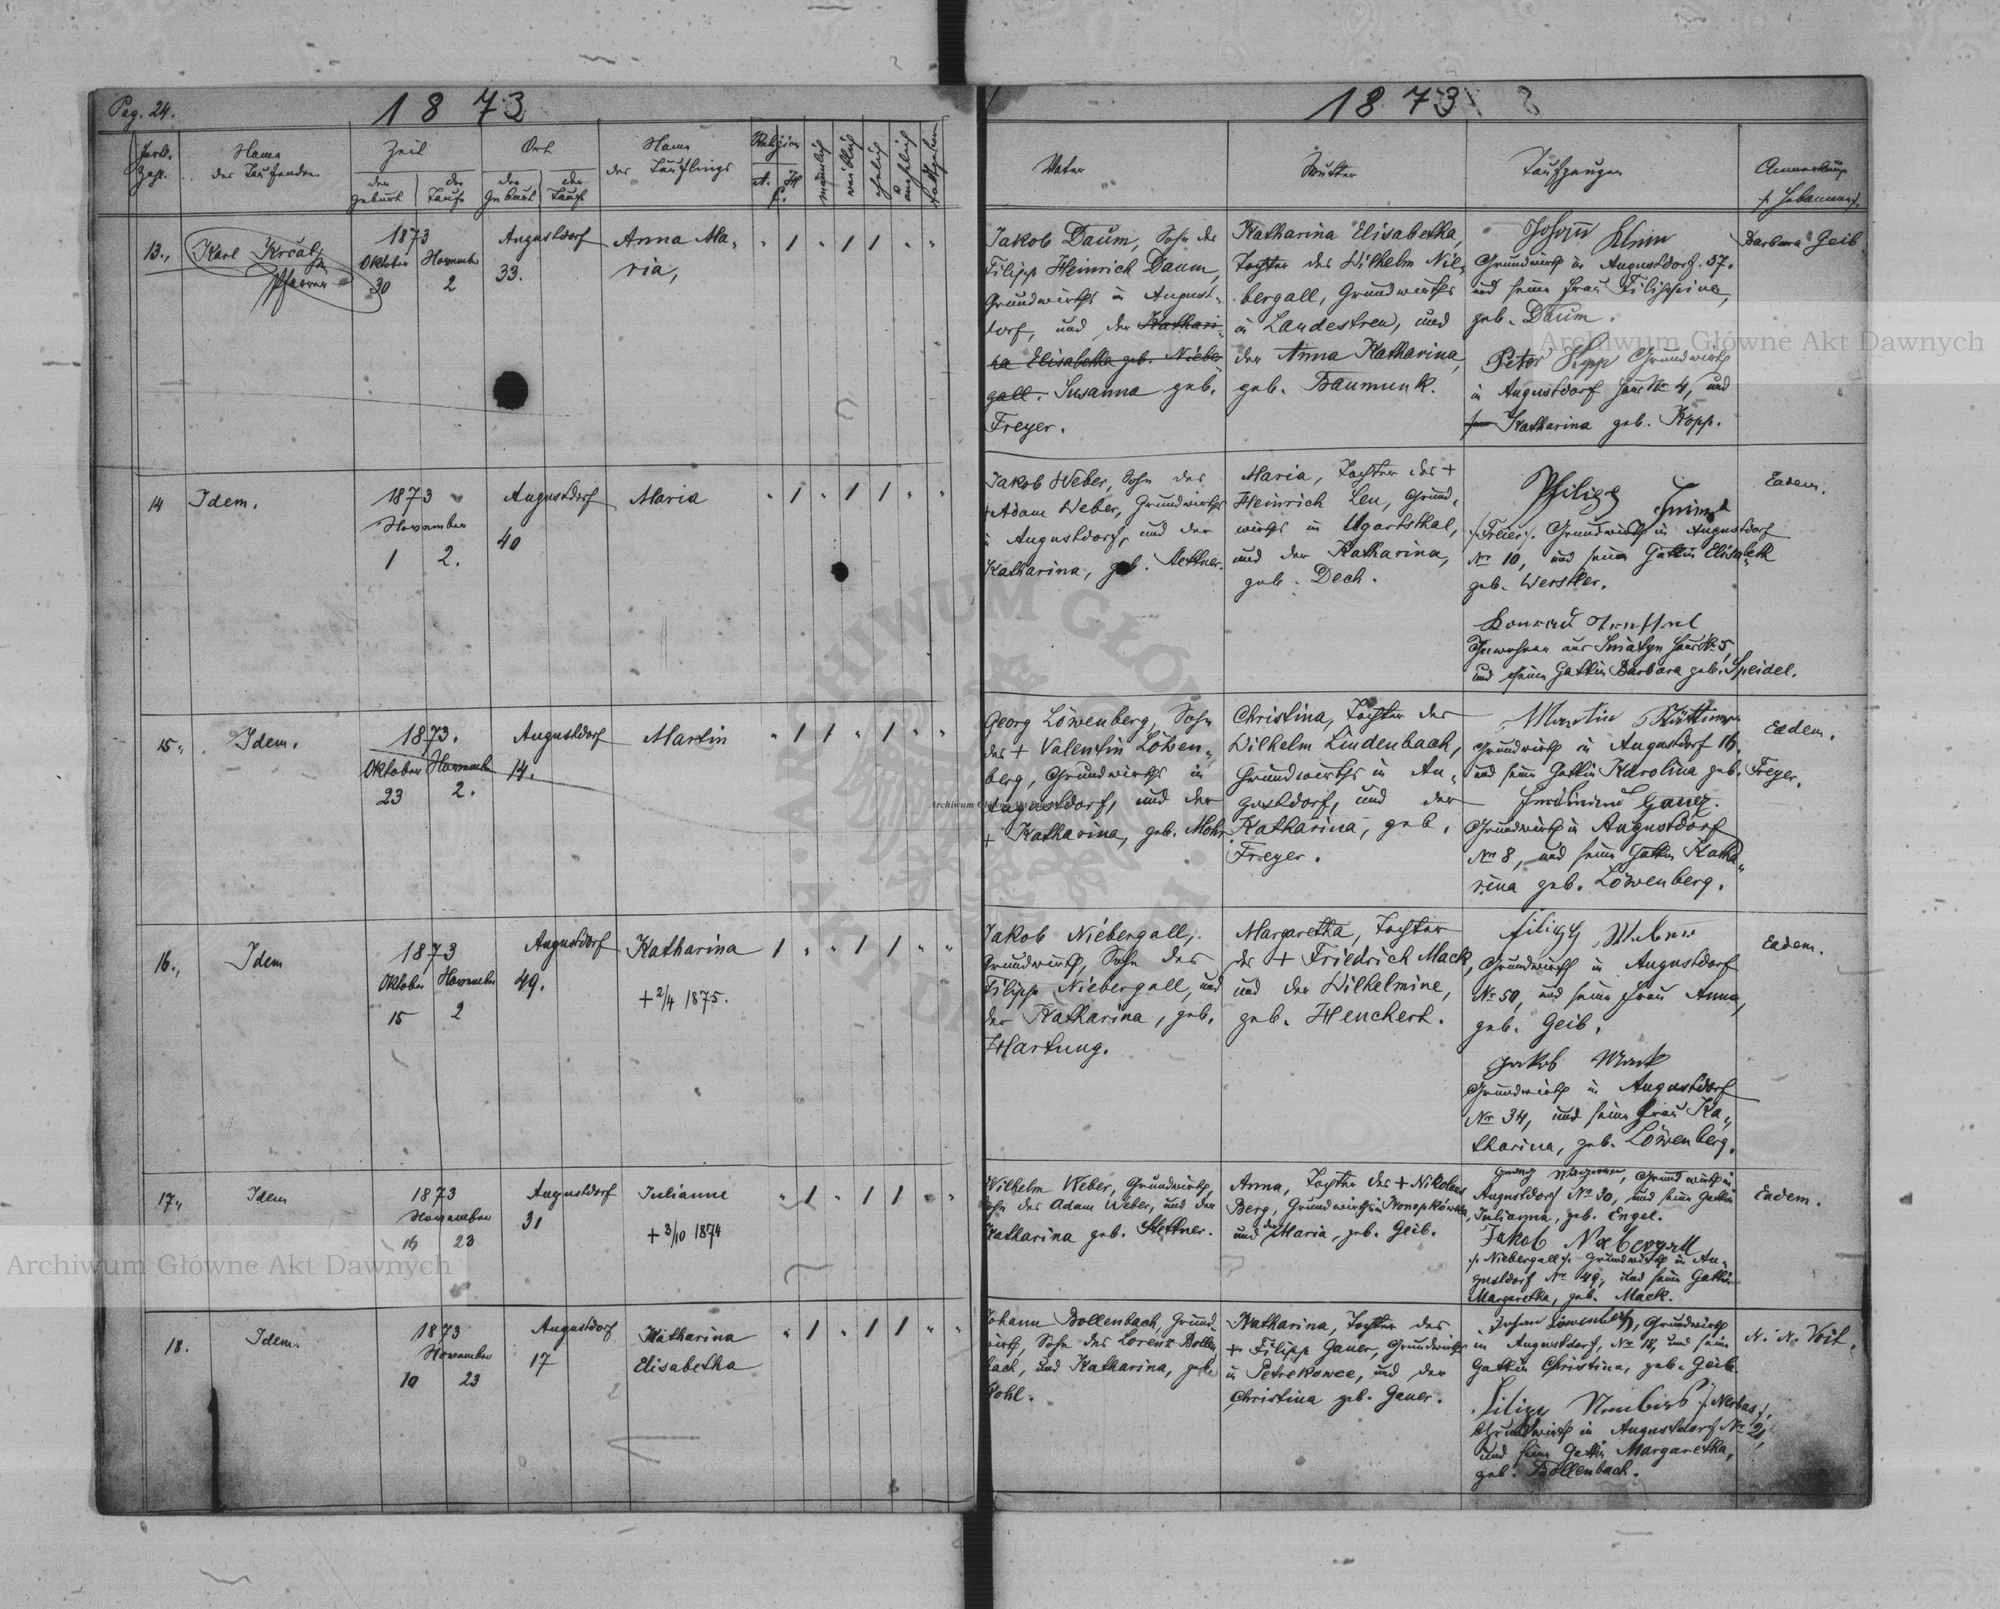 Pag. 24.
1873
Name des Taufenden
Zeit
der Geburt
der Taufe
Ort
der Geburt
der Taufe
Name des Täuflings
Religion
A. C.
H.
männlich
weiblich
ehelich
unehelich
todtgeboren
13.,
Karl Krčal,
Pfarrer
1873
Oktober
November
30
2
Augustdorf
33.
Anna Ma-
ria,
14
Idem.
1873
November
1
2.
Augustdorf
40
Maria
15.,
Idem.
1873.
Oktober
November
23
2.
Augustdorf
14.
Martin
16.,
Idem
1873
Oktober
November
15
2
Augustdorf
49.
Katharina
+ 2/4 1875.
17.,
Idem
1873
November
16
23
Augustdorf
31
Julianne
+ 3/10 1874
18.
Idem.
1873
November
10
23
Augustdorf
17
Katharina
Elisabetha
1873
Vater
Mutter
Taufzeugen
Anmerkung
Jakob Daum, Sohn des
Filipp Heinrich Daum,
Grundwirths in August-
dorf, und der Kathari-
na Elisabetha geb. Nieber
gall. Susanna geb.
Freyer.
Katharina Elisabetha,
Tochter des Wilhelm Nie-
bergall, Grundwirths
in Landestreu, und
der Anna Katharina,
geb. Baumunk.
Johann Klein
Grundwirth in Augustdorf. 37.
und seine Frau Filippina,
geb. Daum.
Peter Kopp Grundwirth
in Augustdorf Haus Nr 4, und
Katharina geb. Kopp.
Barbara Geib.
Jakob Weber, Sohn des
+ Adam Weber, Grundwirths
in Augustdorf, und der
Katharina, geb. Mettner.
Maria, Tochter des +
Heinrich Leu, Grund-
wirths in Ugartsthal,
und der Katharina,
geb. Dech.
Philipp
/Freier/. Grundwirth in Augustdorf
Nr 10, und seine Gattin Elisabeth
geb. Werstler.
Konrad
Inwohner aus Sniatyn Haus Nr 5,
und seine Gattin Barbara geb. Speidel.
Eadem.
Georg Löwenberg, Sohn
des + Valentin Löwen-
berg, Grundwirths in
Augustdorf, und der
+ Katharina, geb. Mohr.
Christina, Tochter des
Wilhelm Lindenbach,
Grundwirths in Au-
gustdorf, und der
Katharina, geb.
Freyer.
Martin
Grundwirth in Augustdorf 16.
und seine Gattin Karolina geb. Freyer.
Ferdinand Ganz.
Grundwirth in Augustdorf
Nr 8, und seine Gattin Katha-
rina geb. Löwenberg.
Eadem.
Jakob Niebergall,
Grundwirth, Sohn des
Filipp Niebergall, und
der Katharina, geb.
Hartung.
Margaretha, Tochter
des + Friedrich Mack,
und der Wilhelmine,
geb. Henchert.
Filipp Weber
Grundwirth in Augustdorf
Nr 50, und seine Frau Anna,
geb. Geib.
Jakob Mack
Grundwirth in Augustdorf
Nr 34, und seine Frau Ka-
tharina, geb. Löwenberg.
Eadem.
Wilhelm Weber, Grundwirth,
Sohn des Adam Weber, und der
Katharina geb. Mettner.
Anna, Tochter des + Nikolaus
Berg, Grundwirths in Konopkówka,
und der Maria, geb. Geib.
Georg Wagner, Grundwirth in
Augustdorf Nr 30, und seine Gattin
Julianna, geb. Engel.
Jakob Niebergall
/. Niebergall /. Grundwirth in Au-
gustdorf Nr 49, und seine Gattin
Margaretha, geb. Mack.
Eadem.
Johann Bollenbach, Grund-
wirth, Sohn des Lorenz Bollen
bach, und Katharina, geb.
Kohl.
Katharina, Tochter des
+ Filipp Gauer, Grundwirths
in Petrekowce, und der
Christina geb. Gauer.
Johann Löwenberg, Grundwirth
in Augustdorf, Nr 18, und seine
Gattin Christina, geb. Geib.
Filipp /. Nerbas /.
Grundwirth in Augustdorf Nr 2,
und seine Gattin Margaretha,
geb. Bollenbach.
N. N. Voit.
Archiwum Główne Akt Dawnych
Archiwum Główne Akt Dawnych
Archiwum Główne Akt Dawnych
ARCHIWUM GŁÓWNE AKT DAWNYCH